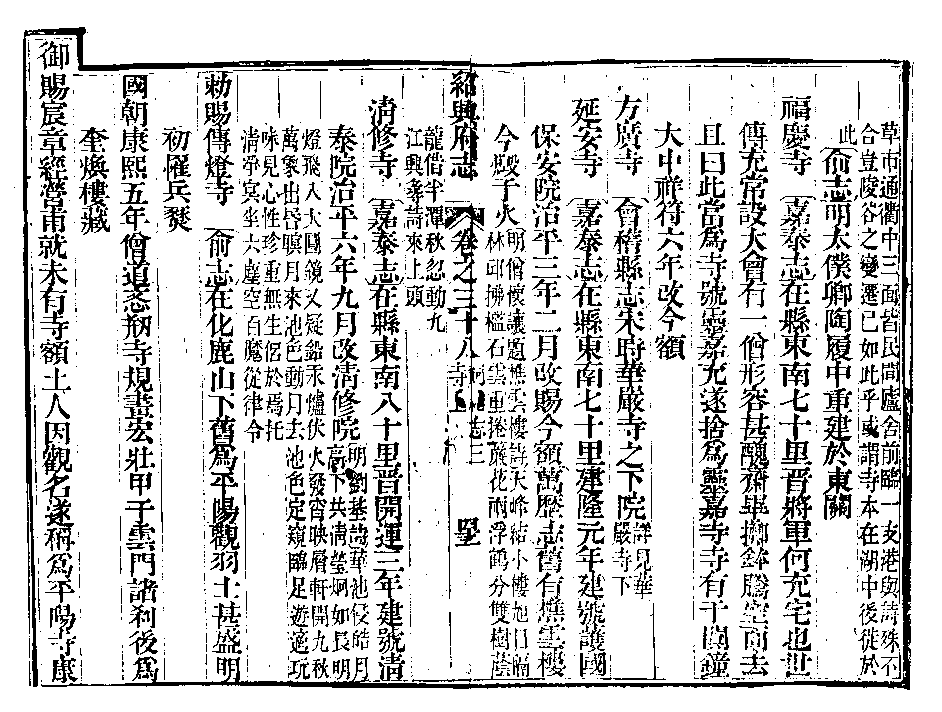 草市通衢中三面皆民間廬舍前臨一支港與詩殊不
合豈陵谷之變遷已如此乎或謂寺本在湖中後徙於
此　俞志明太僕卿陶履中重建於東關
福慶寺　嘉泰志在縣東南七十里晉將軍何充宅也世
傳充常設大會有一僧形容甚醜齋畢擲鉢騰空而去
且曰此當爲寺號靈嘉充遂捨爲靈嘉寺寺有千圓鐘
大中祥符六年改今額
方廣寺　會稽縣志宋時華嚴寺之下院詳見華嚴寺下
延安寺　嘉泰志在縣東南七十里建隆元年建號護國
保安院治平三年二月改賜今額萬歷志舊有樵雲樓
今燬于火明僧懷讓題樵雲樓詩天峰結小樓旭日隔
林邱拂檻石雲重捲簾花雨浮鶴分雙樹蔭
龍借半潭秋忽動九
江興尋詩來上頭
紹興府志　卷之三十八　祠祀志三
清修寺　嘉泰志在縣東南八十里晉開運三年建號清
泰院治平六年九月改清修院明劉基詩華池侵皓月
高下共清瑩炯如長明
燈飛入大圓鏡又疑鉛汞爐伏火發宵映層軒開九秋
萬象出昏暝月來池色動月去池色定窺臨足遊遥玩
味見心性珍重無生侶於焉托
清淨冥坐六塵空百魔從律令
勅賜傳燈寺　俞志在化鹿山下舊爲平陽觀羽士甚盛明
初罹兵燹
國朝康熙五年僧道忞剏寺規畫宏壯甲于雲門諸刹後爲
奎煥樓藏
御賜宸章經營甫就未有寺額土人因觀名遂稱爲平陽寺康